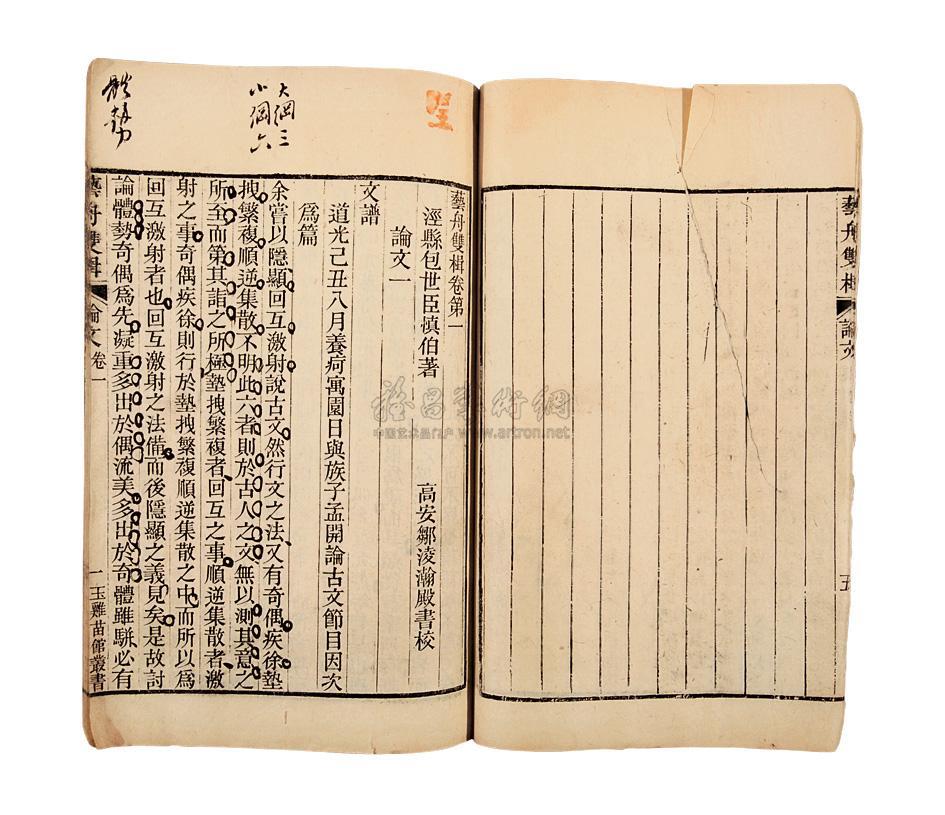 藝舟雙楫
論文
五
藝舟雙楫卷第一
涇縣包世臣慎伯著
高安鄒淩瀚殿書校
論文一
文譜
道光己丑八月養疴寓園日與族子孟開論古文節目因次
爲篇
余嘗以隱顯回互激射說古文然行文之法又有奇偶疾徐墊
拽繁複順逆集散不明此六者則於古人之文無以測其意之
所至而第其詣之所極墊拽繁複者回互之事順逆集散者激
射之事奇偶疾徐則行於墊拽繁複順逆集散之中而所以爲
回互激射者也回互激射之法備而後隱顯之義見矣是故討
論體勢奇偶爲先凝重多出於偶流美多出於奇體雖駢必有
藝舟雙楫
論文卷一
一
玉雞苗館叢書
大綱三
小綱六
體勢
裕昌藝術網
中国艺术品门户 www.artron.net